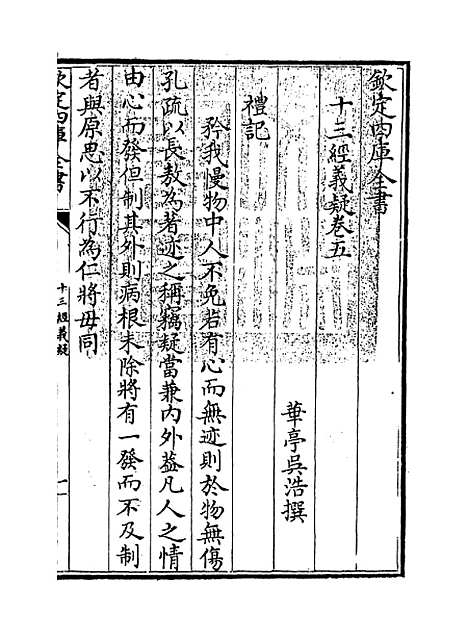 欽定四庫全書
十三經義疑卷五
華亭吳浩撰
禮記
矜我慢物中人不免若有心而無迹則於物無傷
孔疏以長敖為著迹之稱竊疑當兼內外蓋凡人之情
由心而發但制其外則病根未除將有一發而不及制
者與原思以不行為仁將毋同
欽定四庫全書
十三經義疑
一